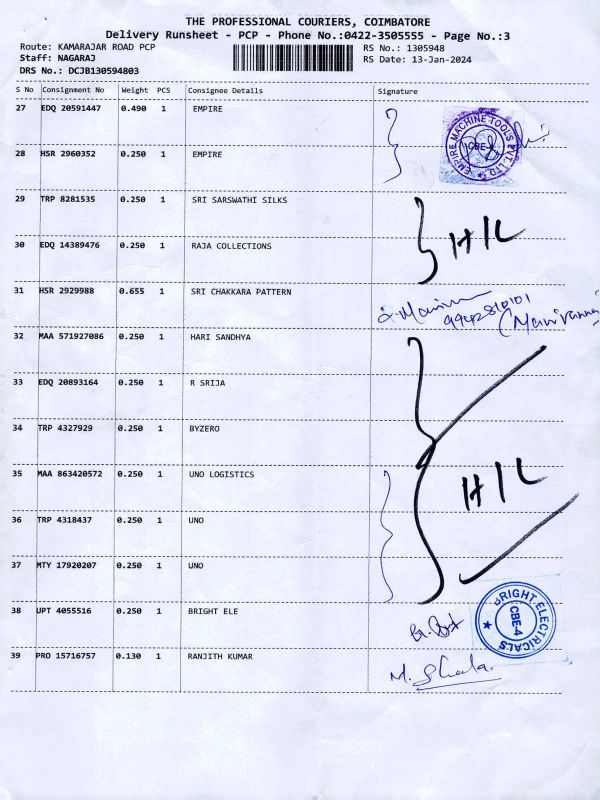 THE PROFESSIONAL COURIERS, COIMBATORE
Delivery Runsheet - PCP - Phone No.:0422-3505555 - Page No.:3
Route: KAMARAJAR ROAD PCP RS No.: 1305948
Staff: NAGARAJ RS Date: 13-Jan-2024
DRS No.: DCJB130594803
S No Consignment No Weight PCS Consignee Details Signature
27 EDQ 20591447 0.490 1 EMPIRE
EMPIRE MACHINE TOOLS PVT. LTD. CBE-4
28 HSR 2960352 0.250 1 EMPIRE
29 TRP 8281535 0.250 1 SRI SARSWATHI SILKS
HIL
30 EDQ 14389476 0.250 1 RAJA COLLECTIONS
31 HSR 2929988 0.655 1 SRI CHAKKARA PATTERN
9942810101
32 MAA 571927086 0.250 1 HARI SANDHYA
33 EDQ 20893164 0.250 1 R SRIJA
34 TRP 4327929 0.250 1 BYZERO
35 MAA 863420572 0.250 1 UNO LOGISTICS
HIL
36 TRP 4318437 0.250 1 UNO
37 MTY 17920207 0.250 1 UNO
38 UPT 4055516 0.250 1 BRIGHT ELE
BRIGHT ELECTRICALS CBE-4
39 PRO 15716757 0.130 1 RANJITH KUMAR